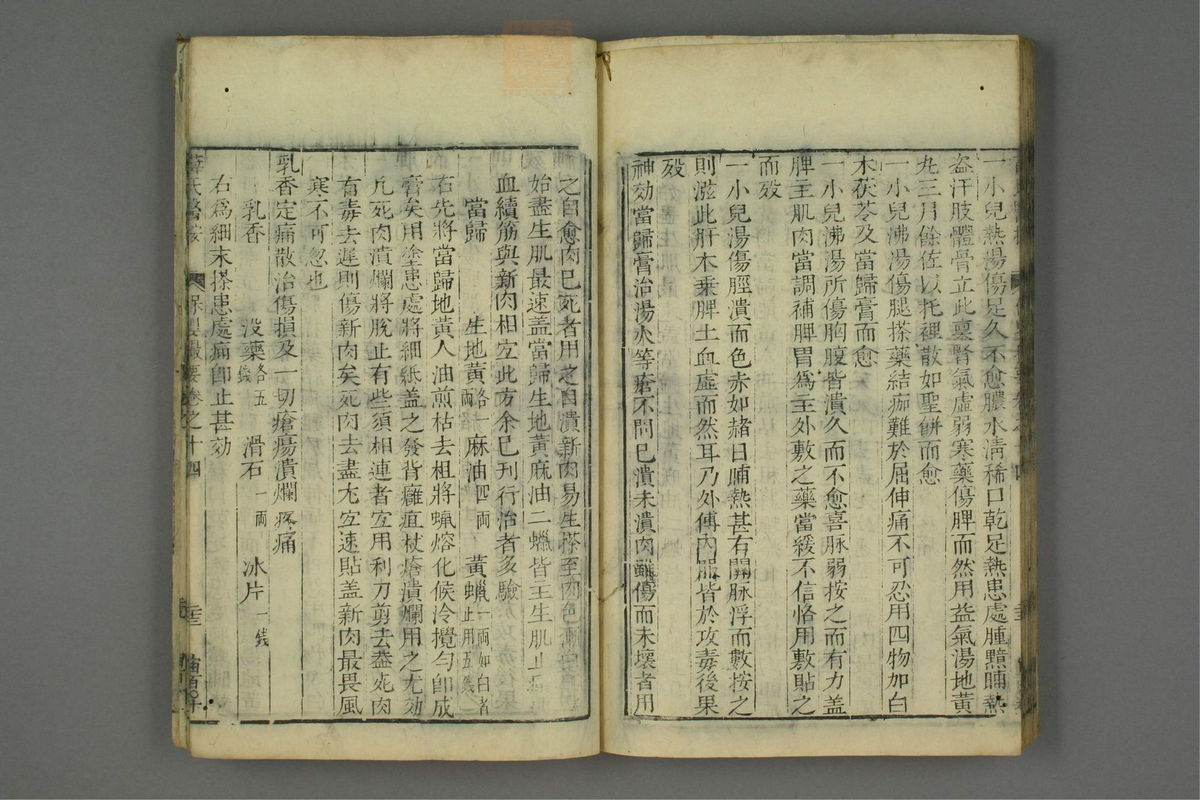 一小兒熱湯傷足久不愈膿水清稀口乾足熱患處腫黯晡熱
盗汗肢體骨立此禀腎氣虚弱寒藥傷脾而然用益氣湯地黄
丸三月餘佐以托裡散如聖餅而愈
一小兒沸湯傷腿搽藥結痂難於屈伸痛不可忍用四物加白
木茯苓及當歸膏而愈
一小兒沸湯所傷胸腹皆潰久而不愈喜脉弱按之而有力盖
脾主肌肉當調補脾胃爲主外敷之藥當緩不信恪用敷貼之
而歿
一小兒湯傷脛潰而色赤如赭日晡熱甚右關脉浮而數按之
則澁此肝木乗脾土血虚而然耳乃外傅内服皆於攻毒後果
歿
神効當歸膏治湯火等瘡不問已潰未潰肉雖傷而未壞者用
之自愈肉已死者用之自潰新肉易生搽至肉色漸白
始盡生肌最速盖當歸生地黄麻油二蠟皆主生肌止
血續筋與新肉相宜此方余已刊行治者多驗
當歸 生地黄各一兩 麻油四兩 黄蠟一兩如白者止用五錢
右先將當歸地黄入油煎枯去柤將蠟熔化候冷攪匀即成
膏矣用塗患處將細紙盖之發背癰疽杖瘡潰爛用之尤効
凡死肉潰爛將脱止有些須相連者宜用利刀剪去葢死肉
有毒去遲則傷新肉矣死肉去盡尤宜速貼盖新肉最畏風
寒不可忽也
乳香定痛散治傷損及一切瘡瘍潰爛疼痛
乳香 没藥各五錢 滑石一兩 冰片一錢
右爲細末搽患處痛即止甚効
薛氏醫案 保嬰撮要卷之十四